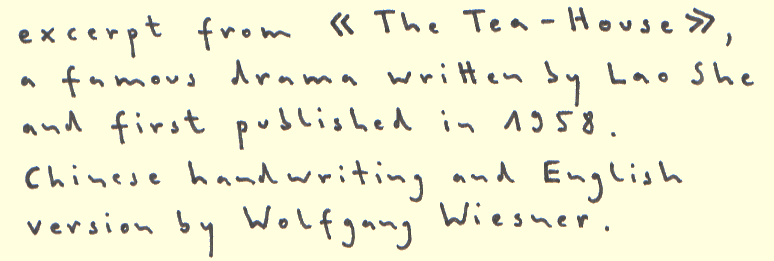 excerpt from « The Tea-House »,
a famous drama written by Lao She
and first published in 1958.
Chinese handwriting and English
version by Wolfgang Wiesner.